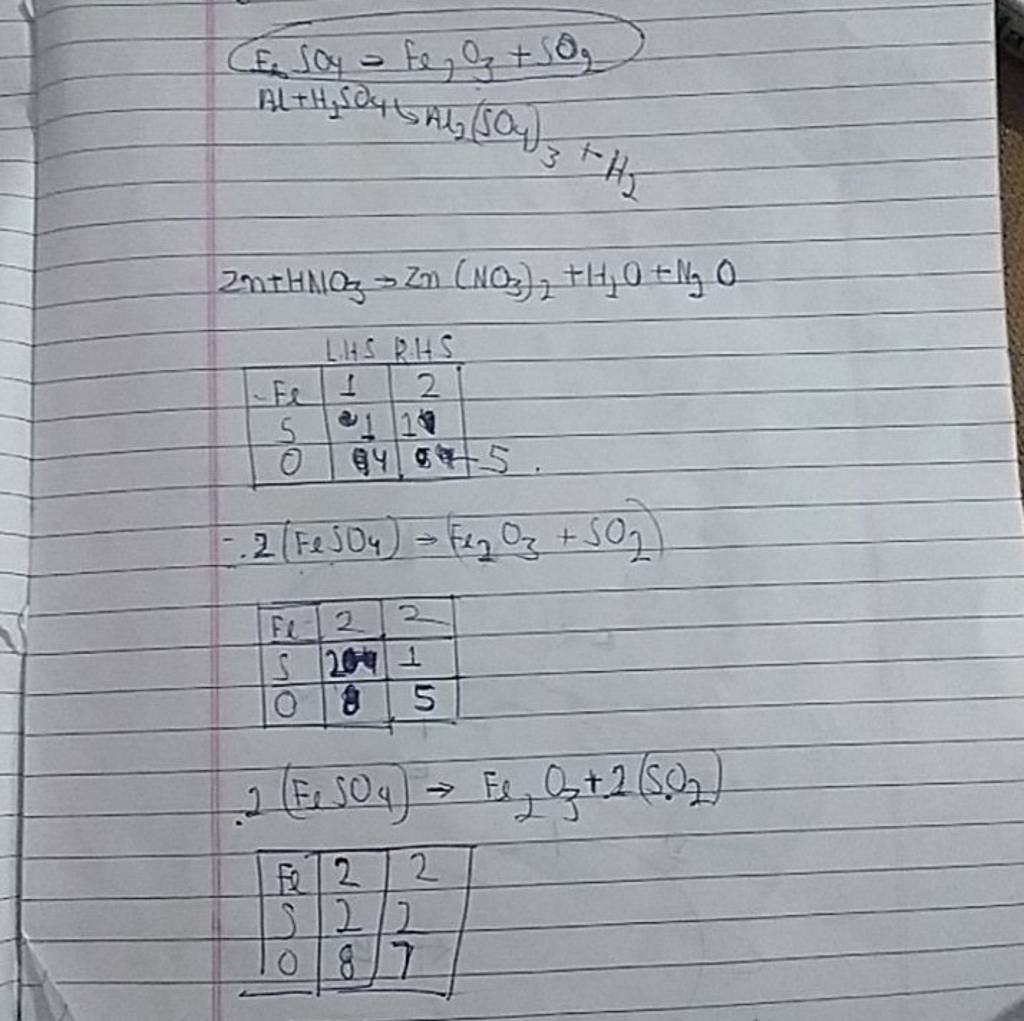 FeSO4 → Fe2O3 + SO2
Al+H2SO4 → Al2(SO4)3 + H2
Zn+HNO3 → Zn (NO3)2 + H2O + N2O
L.H.S R.H.S
Fe 1 2
S 1 1
O 4 5.
2(FeSO4) → (Fe2O3 + SO2)
Fe 2 2
S 2 1
O 8 5
2(FeSO4) → Fe2O3 + 2(SO2)
Fe 2 2
S 2 2
O 8 7